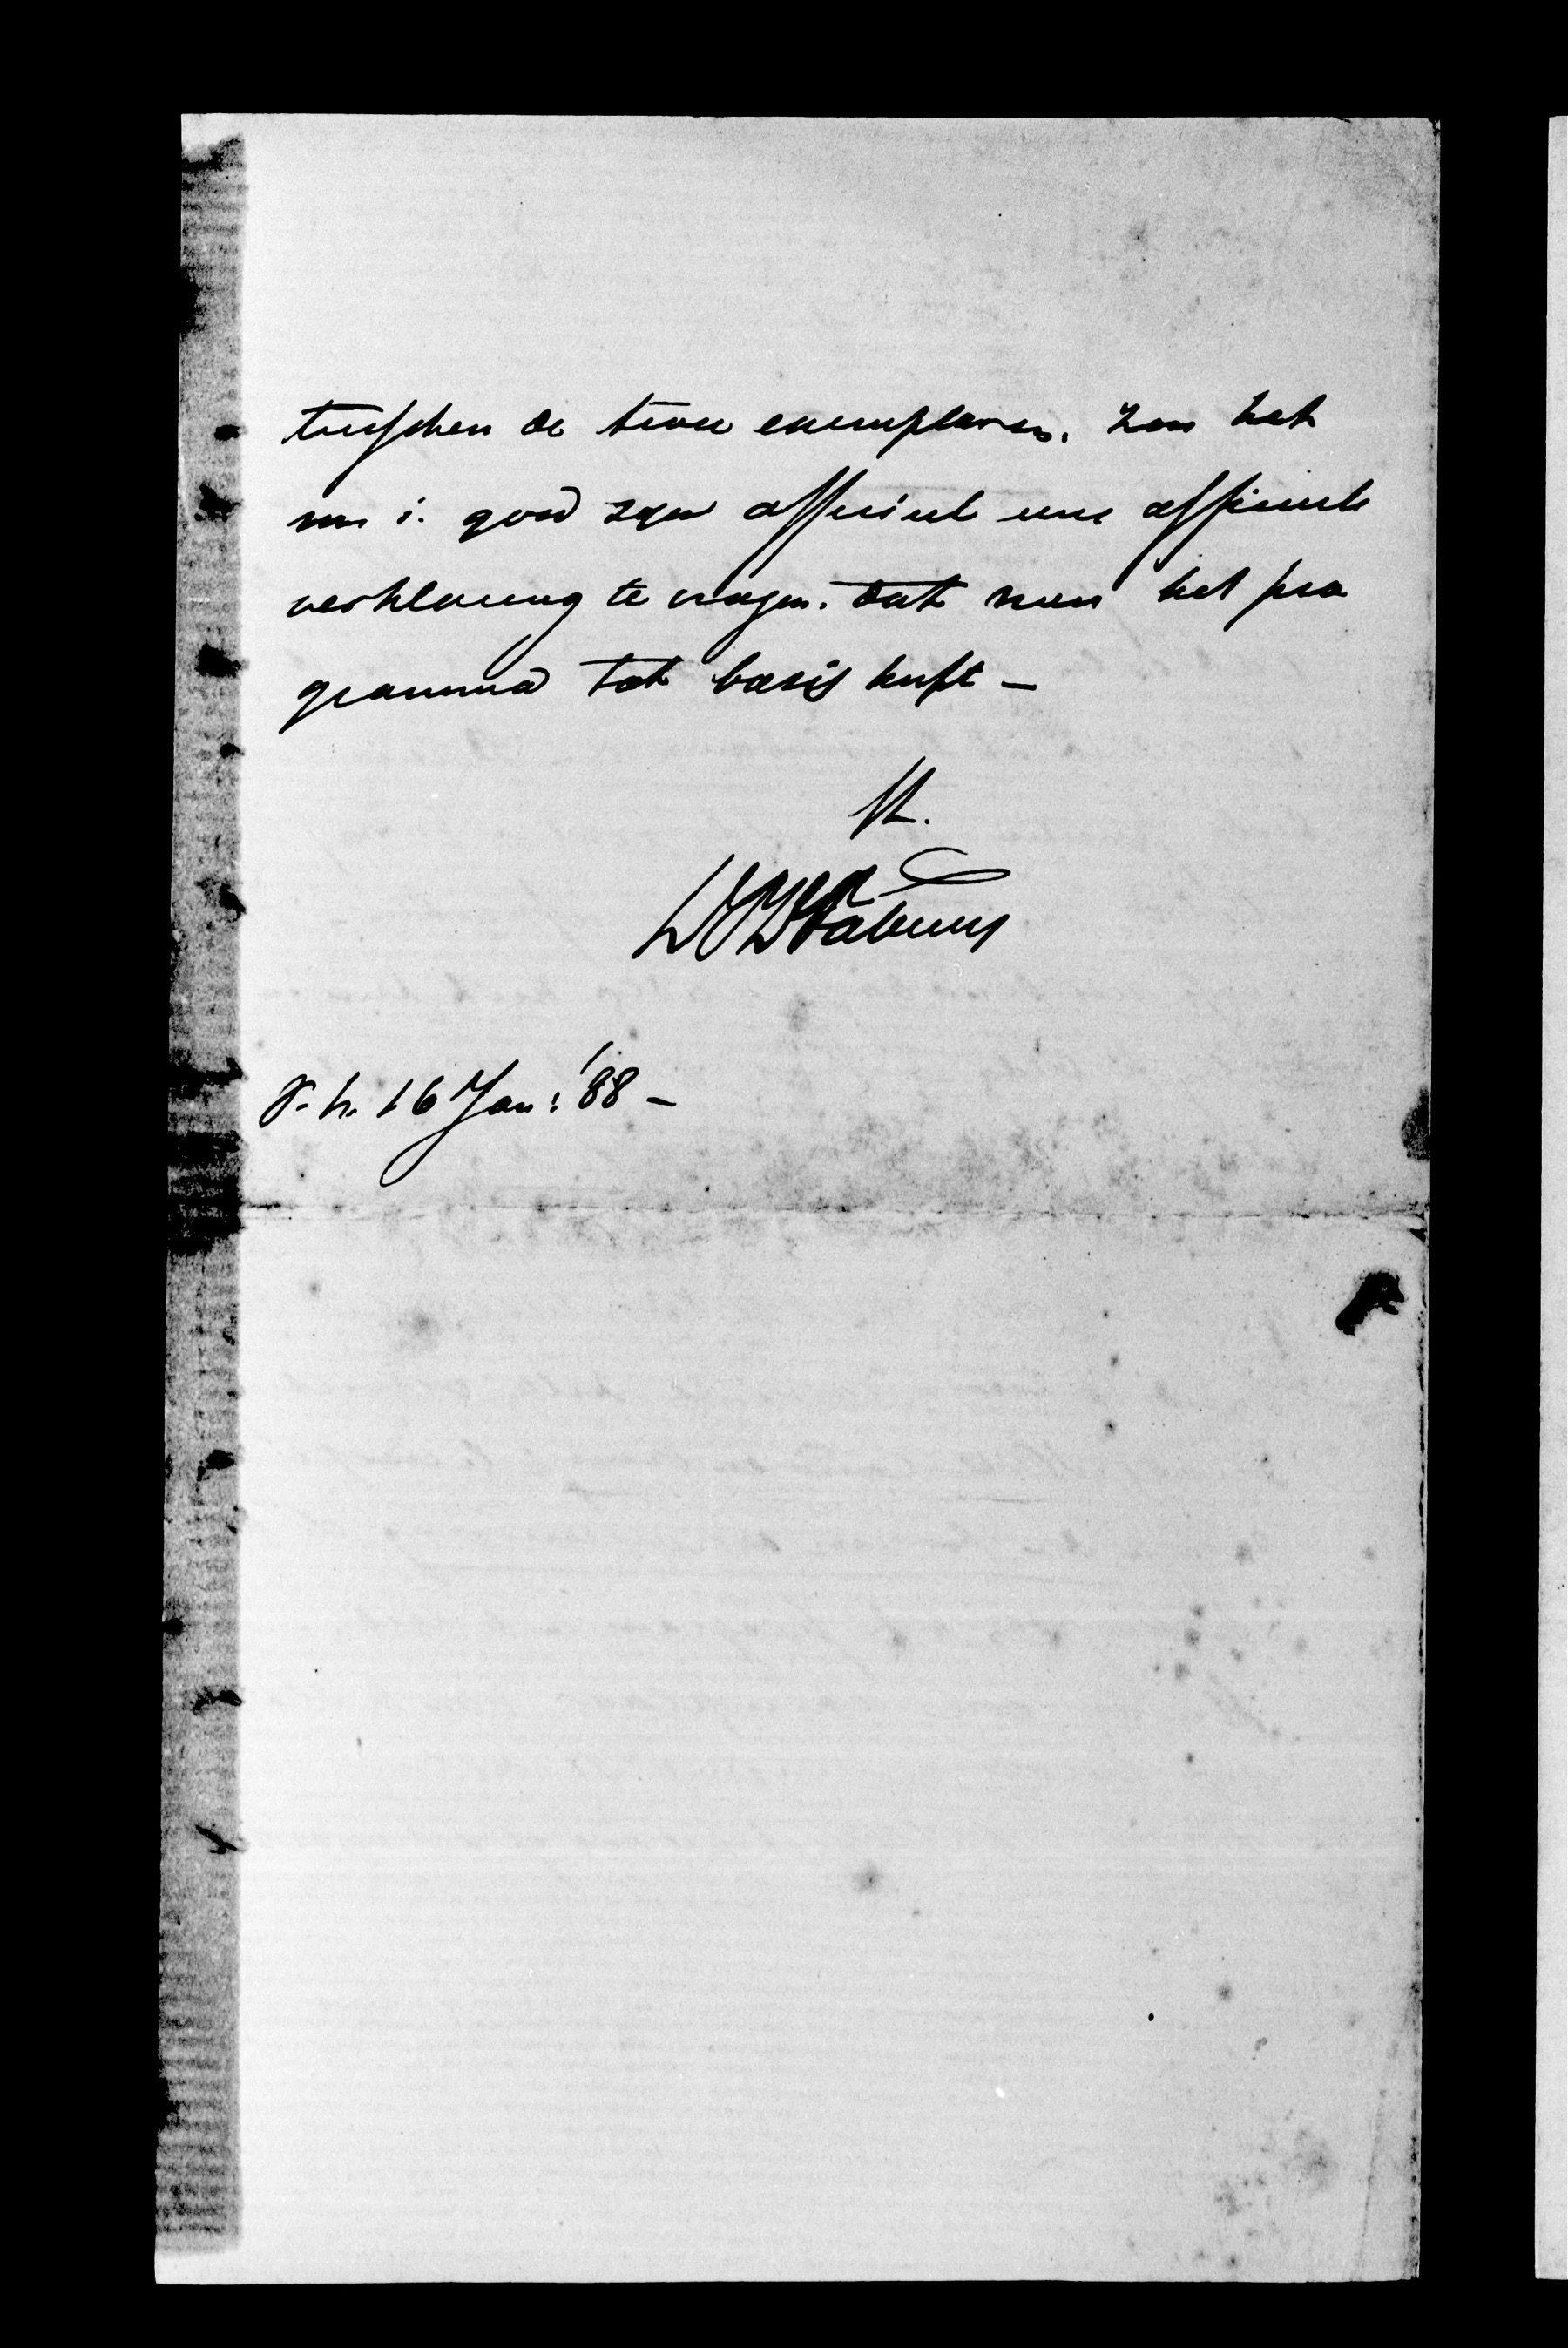 tusschen de twee exemplaren. Zou het
nu i. goed zijn officieel eene officieele
verklaring te vragen. dat men het pro
gramma tot basis heeft —
tt.
DPDFabius
16 Jan: '88 —